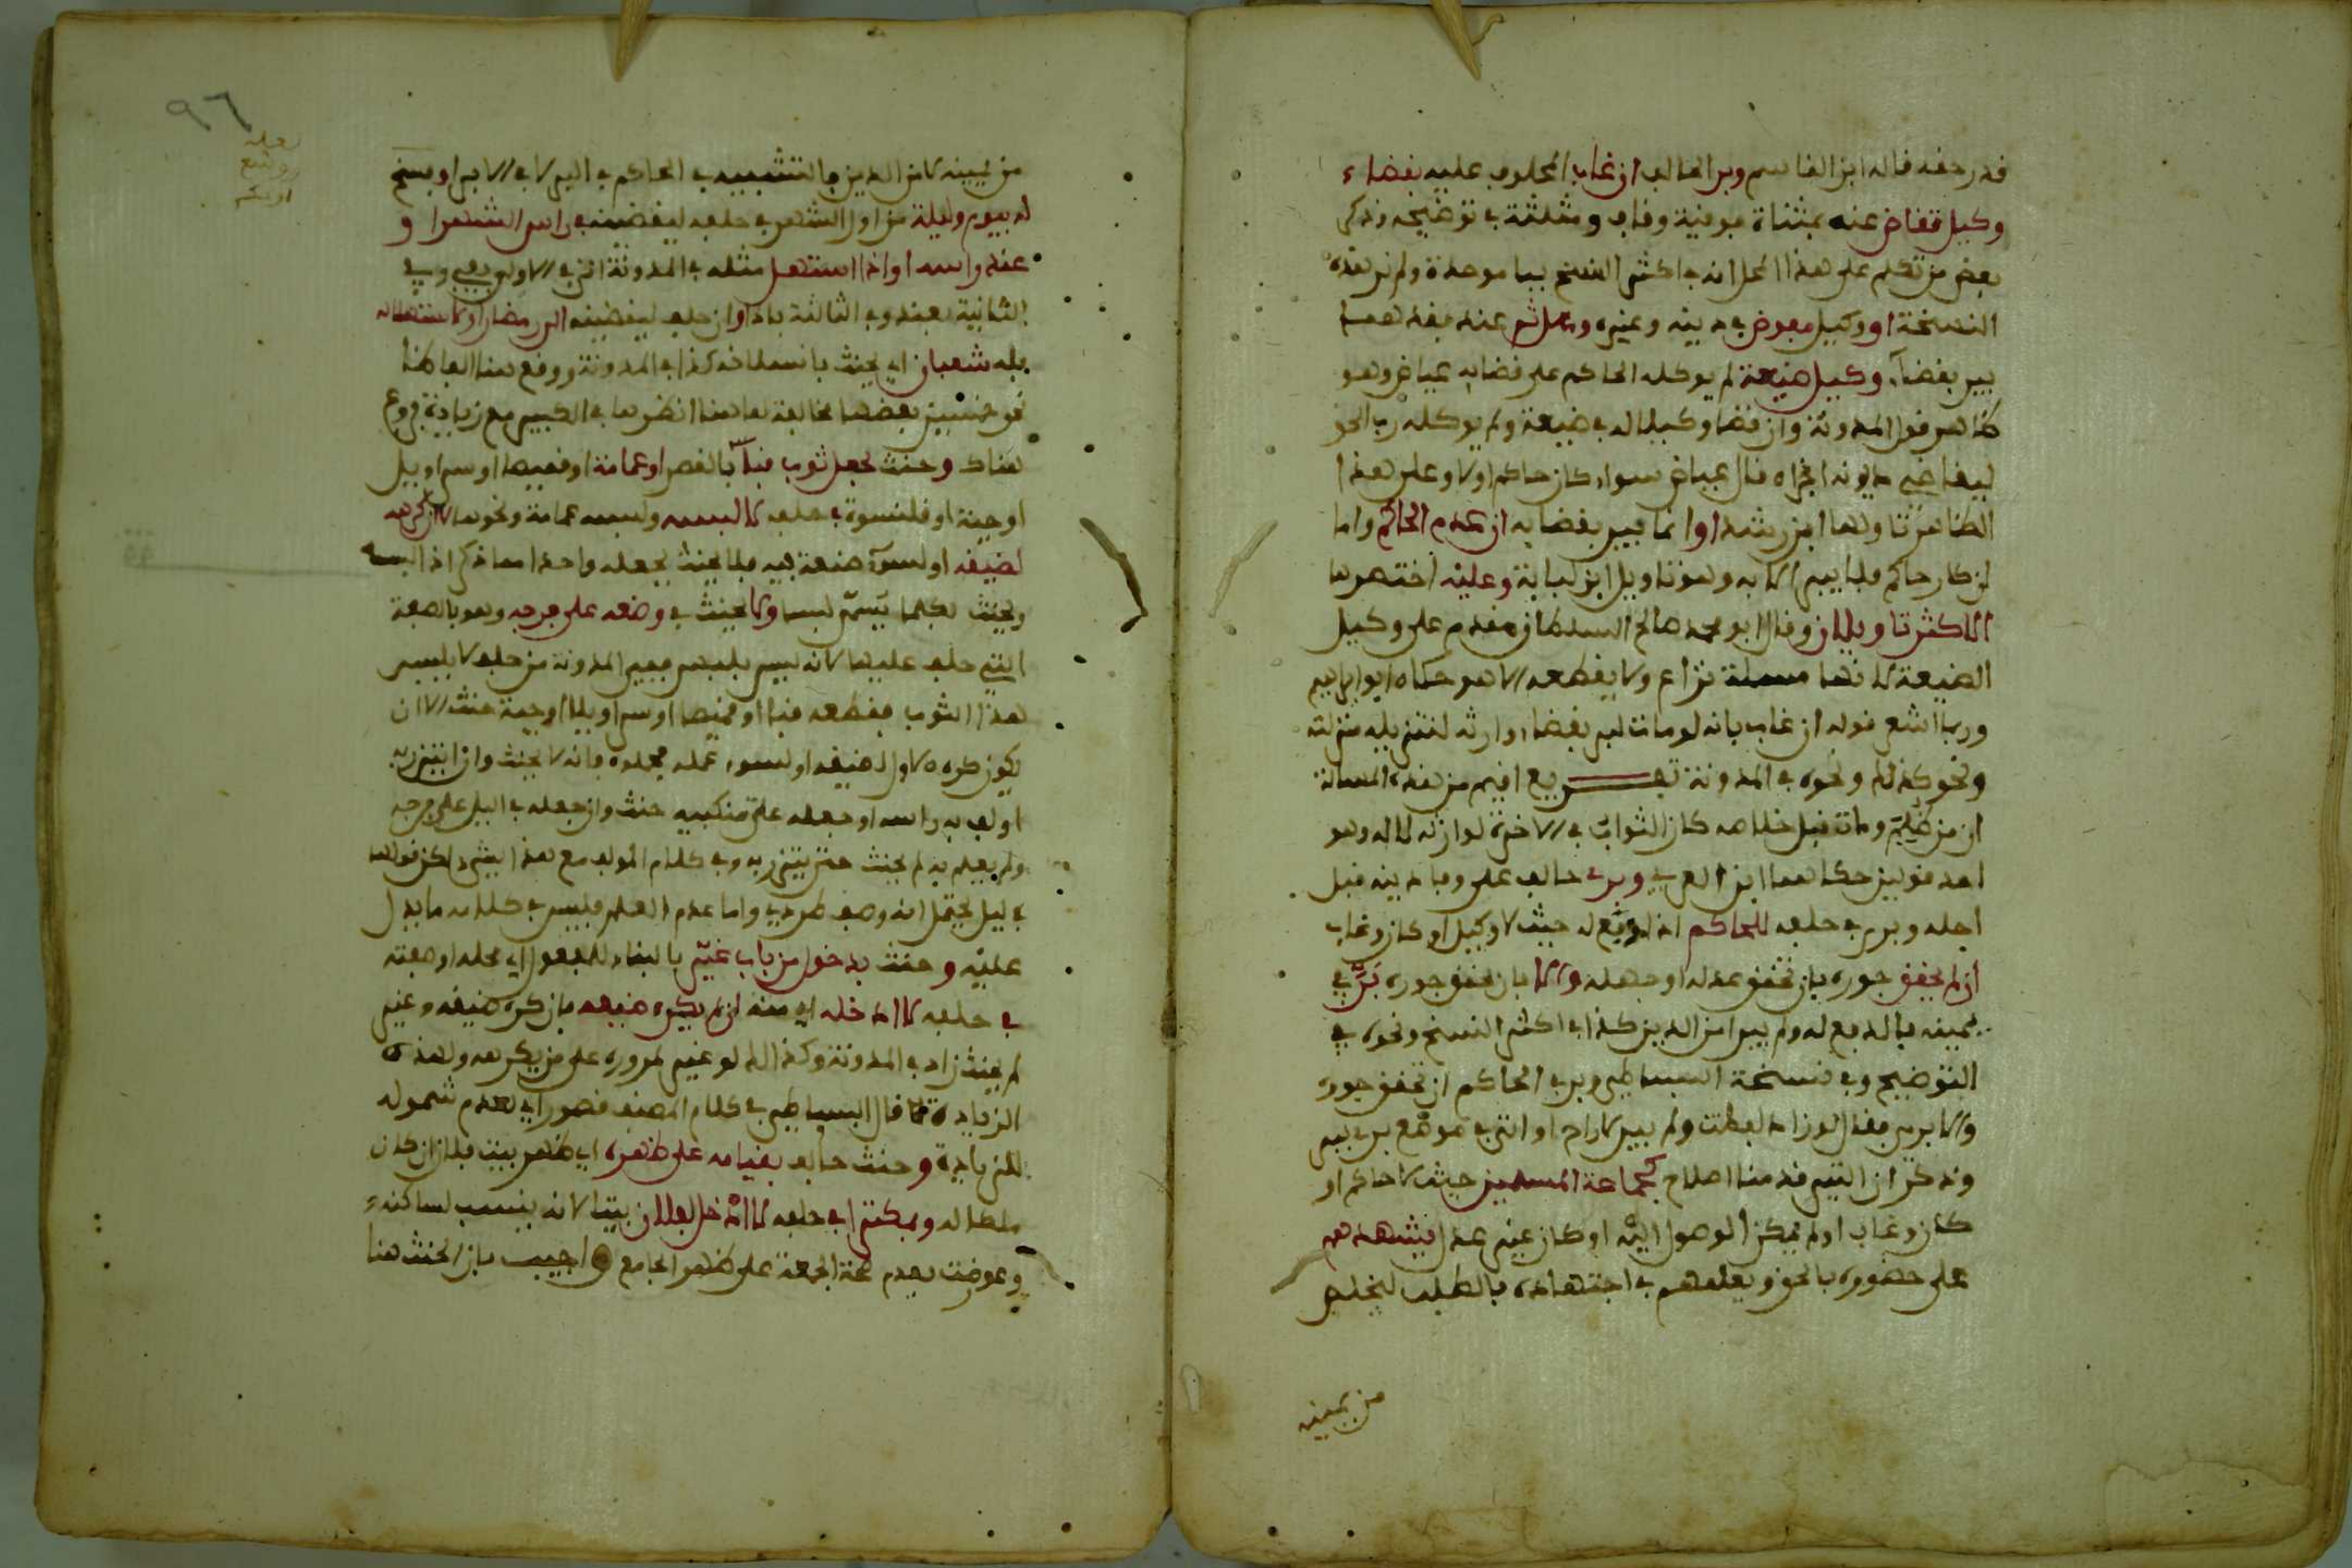 قدر حقه قاله ابن القاسم وبر الحالف ان غاب المحلوف عليه بقضاء
وكيل تقاض عنه بمثناة فوقية وقاف ومثلثة في توضيحه وذكر
بعض من تكلم على هذا المحل انه في اكثر النسخ ببا موحدة ولم نر هذه
النسخة او وكيل مفوض في دينه وغيره وهل ثم عنه فقدهما
يبر بقضاء وكيل ضيعة لم يوكله الحاكم على قضايه عياض وهو
ظاهر قول المدونة وان قضا وكيلا له في ضيعة ولم يوكله رب الحق
ليقاضي ديونه اجزاه قال عياض سواء كان حاكم اولا وعلى هذا
الظاهر تاولها ابن رشد او انما يبر بقضايه ان عدم الحاكم واما
ان كان حاكم فلا يبر الا به وهو تاويل ابن لبابة وعليه اختصرها
الاكثر تاويلان وقال ابو محمد صالح السلطان مقدم على وكيل
الضيعة لانها مسئلة نزاع ولا يقطعه الا هو حكاه ابو ابراهيم
وربما اشعر قوله ان غاب بانه لو مات لبر بقضاء وارثه لتنزيله منزلته
ونحو كذلك ونحوه في المدونة تفريع اقيم من هذه المسالة
ان من ظلم ومات قبل خلاصه كان الثواب في الاخرة لوارثه لا له وهو
احد قولين حكاهما ابن العربي وبر حالف على وفا دينه قبل
اجله وبر في حلفه للحاكم اذا دفع له حيث لا وكيل او كان وغاب
ان لم يحقق جوره بان تحقق عدله او جهله والا بان تحقق جوره بر في
يمينه بالدفع له ولم يبرا من الدين كذا في اكثر النسخ ونحوه في
التوضيح وفي نسخة البساطي وبر في الحاكم ان تحقق جوره
والا بر من فقال لو زاد لفظت ولم يبر لارام او اتى في موضع بر في يبر
وذكر ان التبر قد منا اصلاح كجماعة المسلمين حيث لا حاكم او
كان وغاب او لم يمكن الوصول اليه او كان غير عدل فيشهدهم
على حضوره بالحق ويعلمهم في اجتهاده بالطلب ليخلص
من يمينه
٩٦
من يمينه لا من الدين بالتشبيه في الحاكم في البر لا في الابرا وبسخ
له بيوم وليلة من اول الشهر في حلفه ليقضينه في راس الشهر او
عند راسه او اذا استهل مثله في المدونة اتى في الاولى بفي وفي
الثانية بعند وفي الثالثة باذا وان حلف ليقضينه الى رمضان او لاستهلاله
فله شعبان اي يحنث بانسلاخه كذا في المدونة ووقع هنا الفاظ
نحو خمسين بعضها مخالفة لما هنا انظرها في الكبير مع زيادة فروع
هناك وحنث بجعل ثوب قباء بالقصر او عمامة او قميصا او سراويل
او جبة او قلنسوة في حلفه لا البسه ولبسه عمامة ونحوها لا ان كرهه
لضيقه او لسوء صنعة فيه فلا يحنث بجعله واحدا مما ذكر اذا لبسه
ويحنث بكلما يسمى لبسا ولا يحنث في وضعه على فرجه وهو بالصفة
التي حلف عليها لانه ليس بلبس ففي المدونة من حلف لا يلبس
هذا الثوب فقطعه قبا او قميصا او سراويلا او جبة حنث الا ان
يكون كره الاول لضيقه او لسوء عمله فحوله فانه لا يحنث وان ايتزر به
او لف به راسه او جعله على منكبيه حنث وان جعله في الليل على فرجه
ولم يعلم به لم يحنث حتى يتزر به وفي كلام المولف مع هذا شي لكن قولها
في ليل يحتمل انه وصف طردي واما عدم العلم فليس في كلامه ما يدل
عليه وحنث بدخول من باب غير بالبناء للمفعول اي محله او صفته
في حلفه لا ادخله اي منه ان لم يكره ضيقه فان كره ضيقه وغير
لم يحنث زاد في المدونة وكذا له لو غير لمروره على من يكرهه ولهذه
الزيادة قال البساطي في كلام المصنف قصور اي لعدم شموله
للزيادة وحنث حالف بقيامه على ظهره اي ظهر بيت فلان ان كان
ملكا له وبمكترى في حلفه لا ادخل لفلان بيتا لانه ينسب لساكنه
وعورضت بعدم صحة الجمعة على ظهر الجامع واجيب بان الحنث هنا